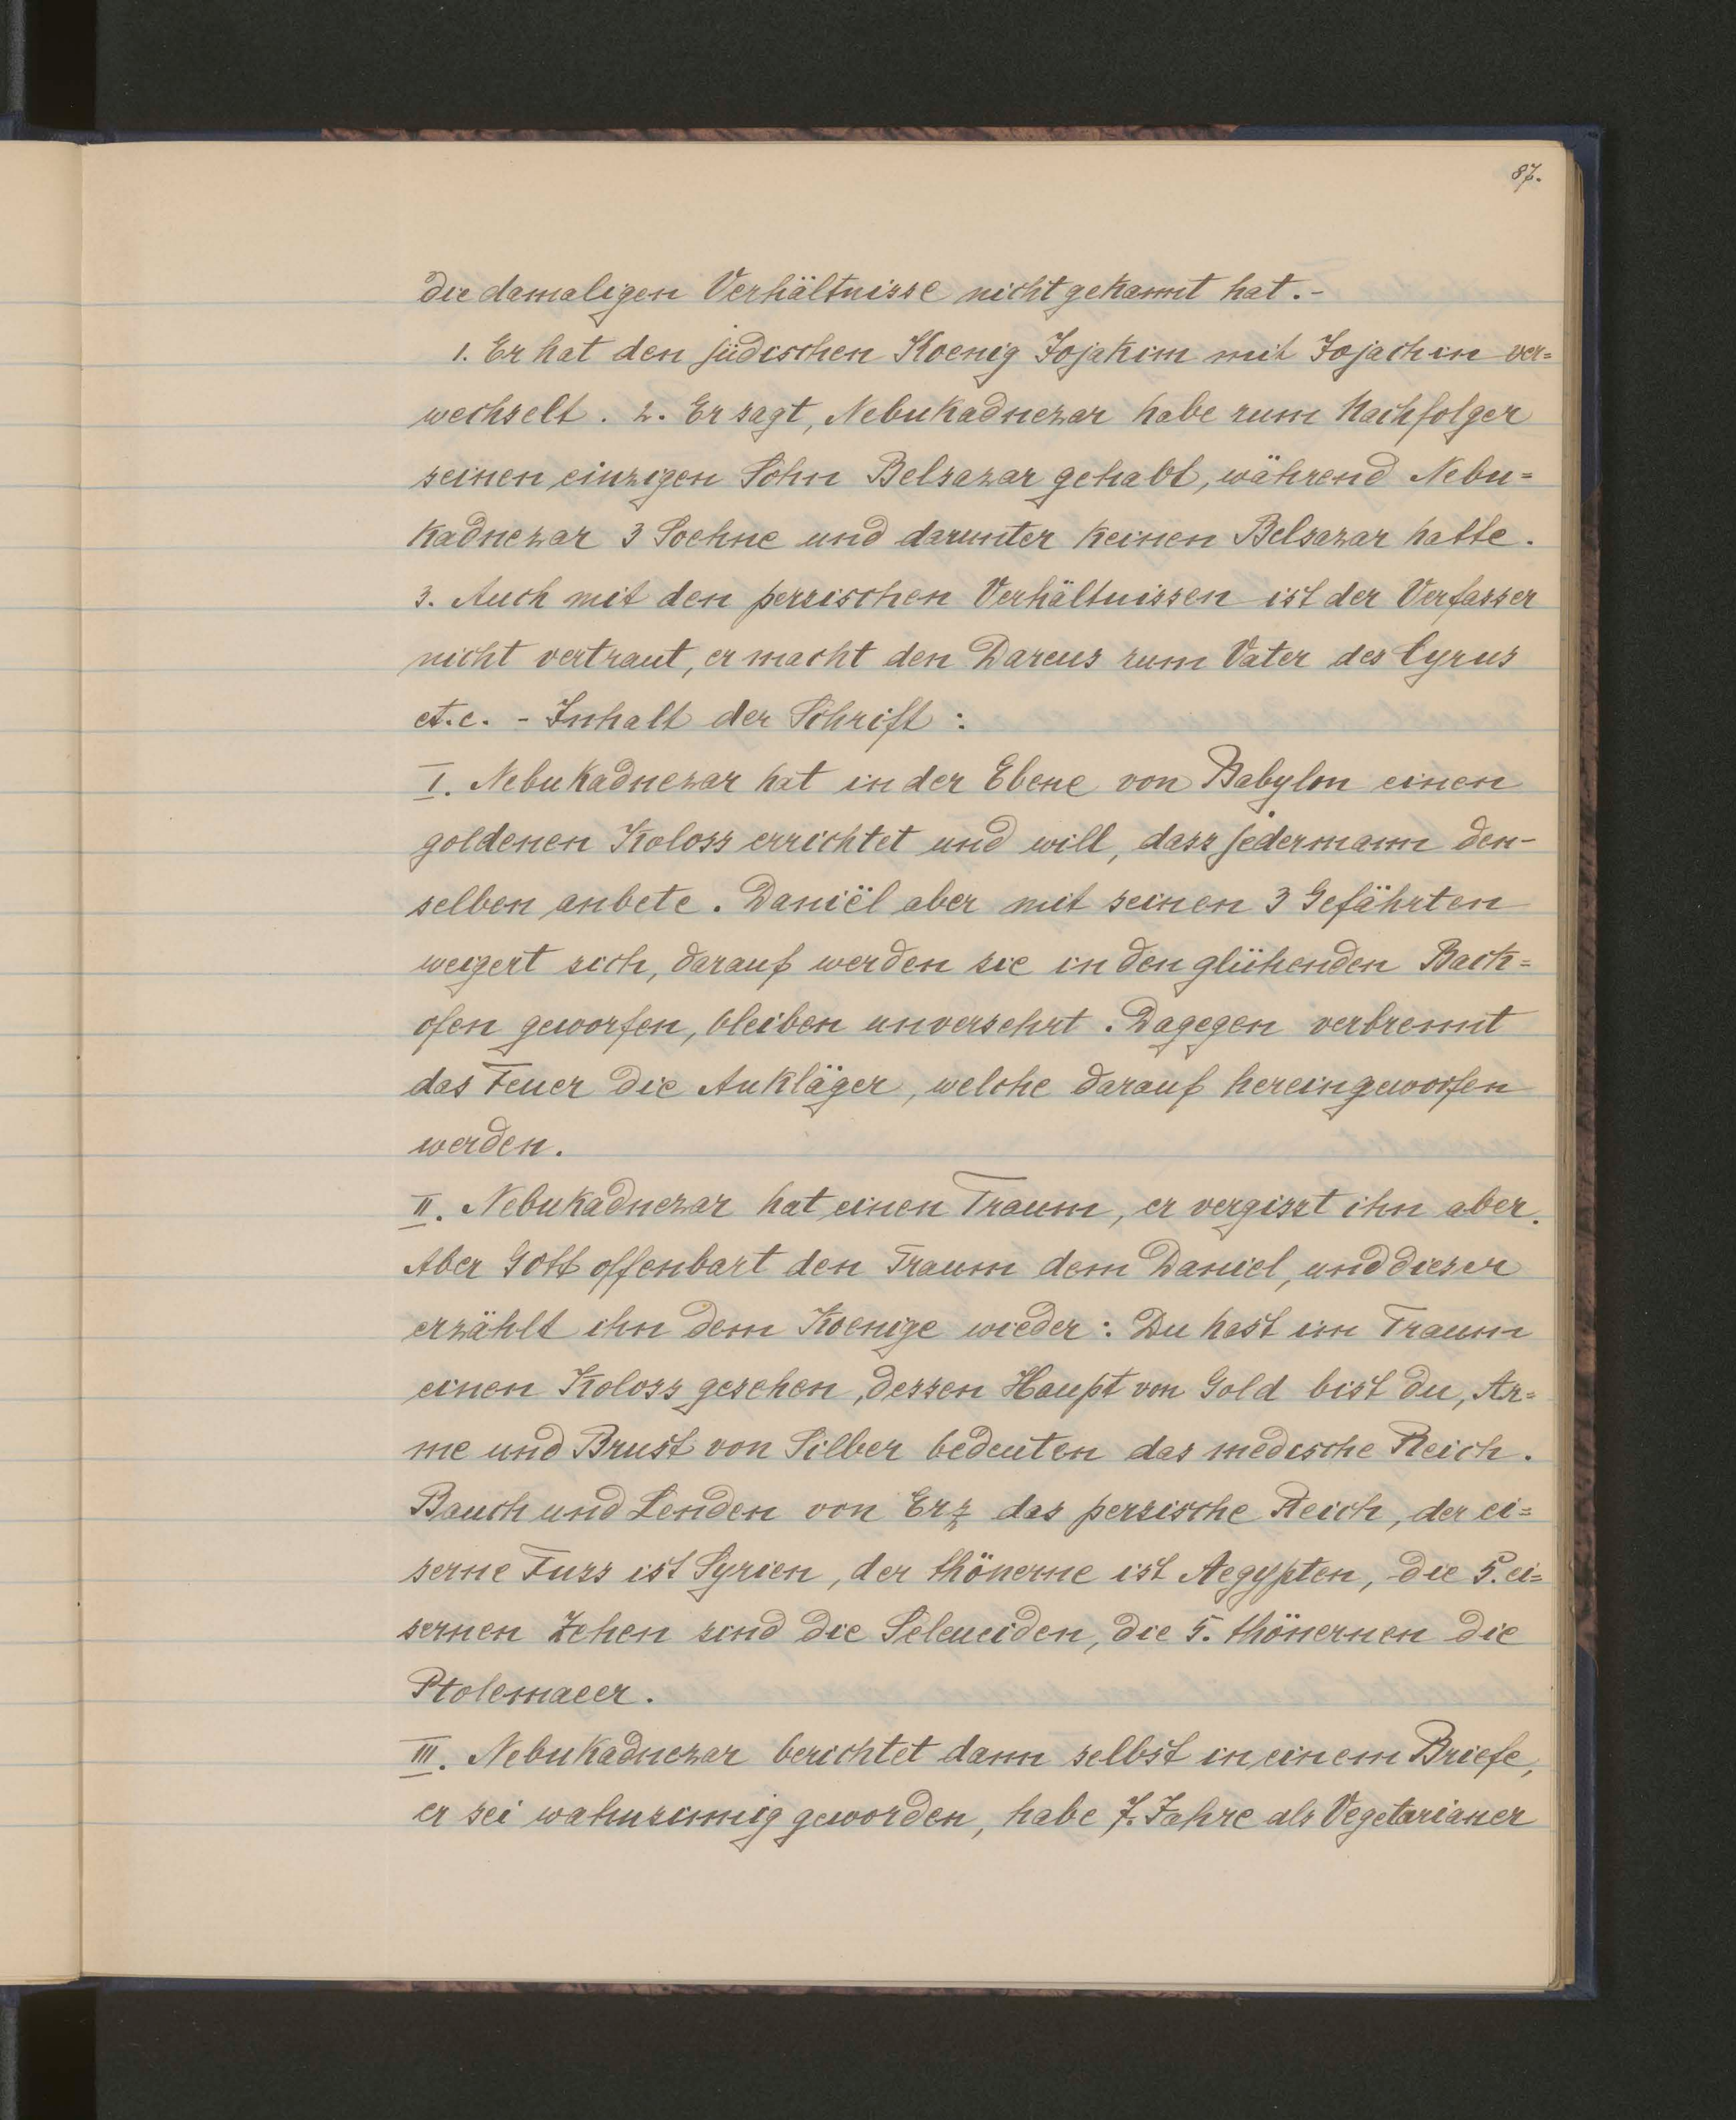 87.
die damaligen Verhältnisse nicht gekannt hat.-
1. Er hat den jüdischen Koenig Jojakim mit Jojachin ver=
wechselt. 2. Er sagt, Nebukadnezar habe zum Nachfolger
seinen einzigen Sohn Belsazar gehabt, während Nebu=
kadnezar 3 Soehne und darunter keinen Belsazar hatte.
3. Auch mit den persischen Verhältnissen ist der Verfasser
nicht vertraut, er macht den Dareus zum Vater des Cyrus
et.c. - Inhalt der Schrift:
I. Nebukadnezar hat in der Ebene von Babylon einen
goldenen Koloss errichtet und will, dass jedermann den-
selben anbete. Daniël aber mit seinen 3 Gefährten
weigert sich, darauf werden sie in den glühenden Back=
ofen geworfen, bleiben unversehrt. Dagegen verbrennt
das Feuer die Ankläger, welche darauf hereingeworfen
werden.
II. Nebukadnezar hat einen Traum, er vergisst ihn aber.
Aber Gott offenbart den Traum dem Daniel, und dieser
erzählt ihn dem Koenige wieder: Du hast im Traum
einen Koloss gesehen, dessen Haupt von Gold bist du, Ar=
me und Brust von Silber bedeuten das medische Reich.
Bauch und Lenden von Erz das persische Reich, der ei=
serne Fuss ist Syrien, der thönerne ist Aegypten, die 5. ei=
sernen Zehen sind die Seleuciden, die 5. thönernen die
Ptolemaeer.
III. Nebukadnezar berichtet dann selbst in einem Briefe,
er sei wahnsinnig geworden, habe 7. Jahre als Vegetarianer